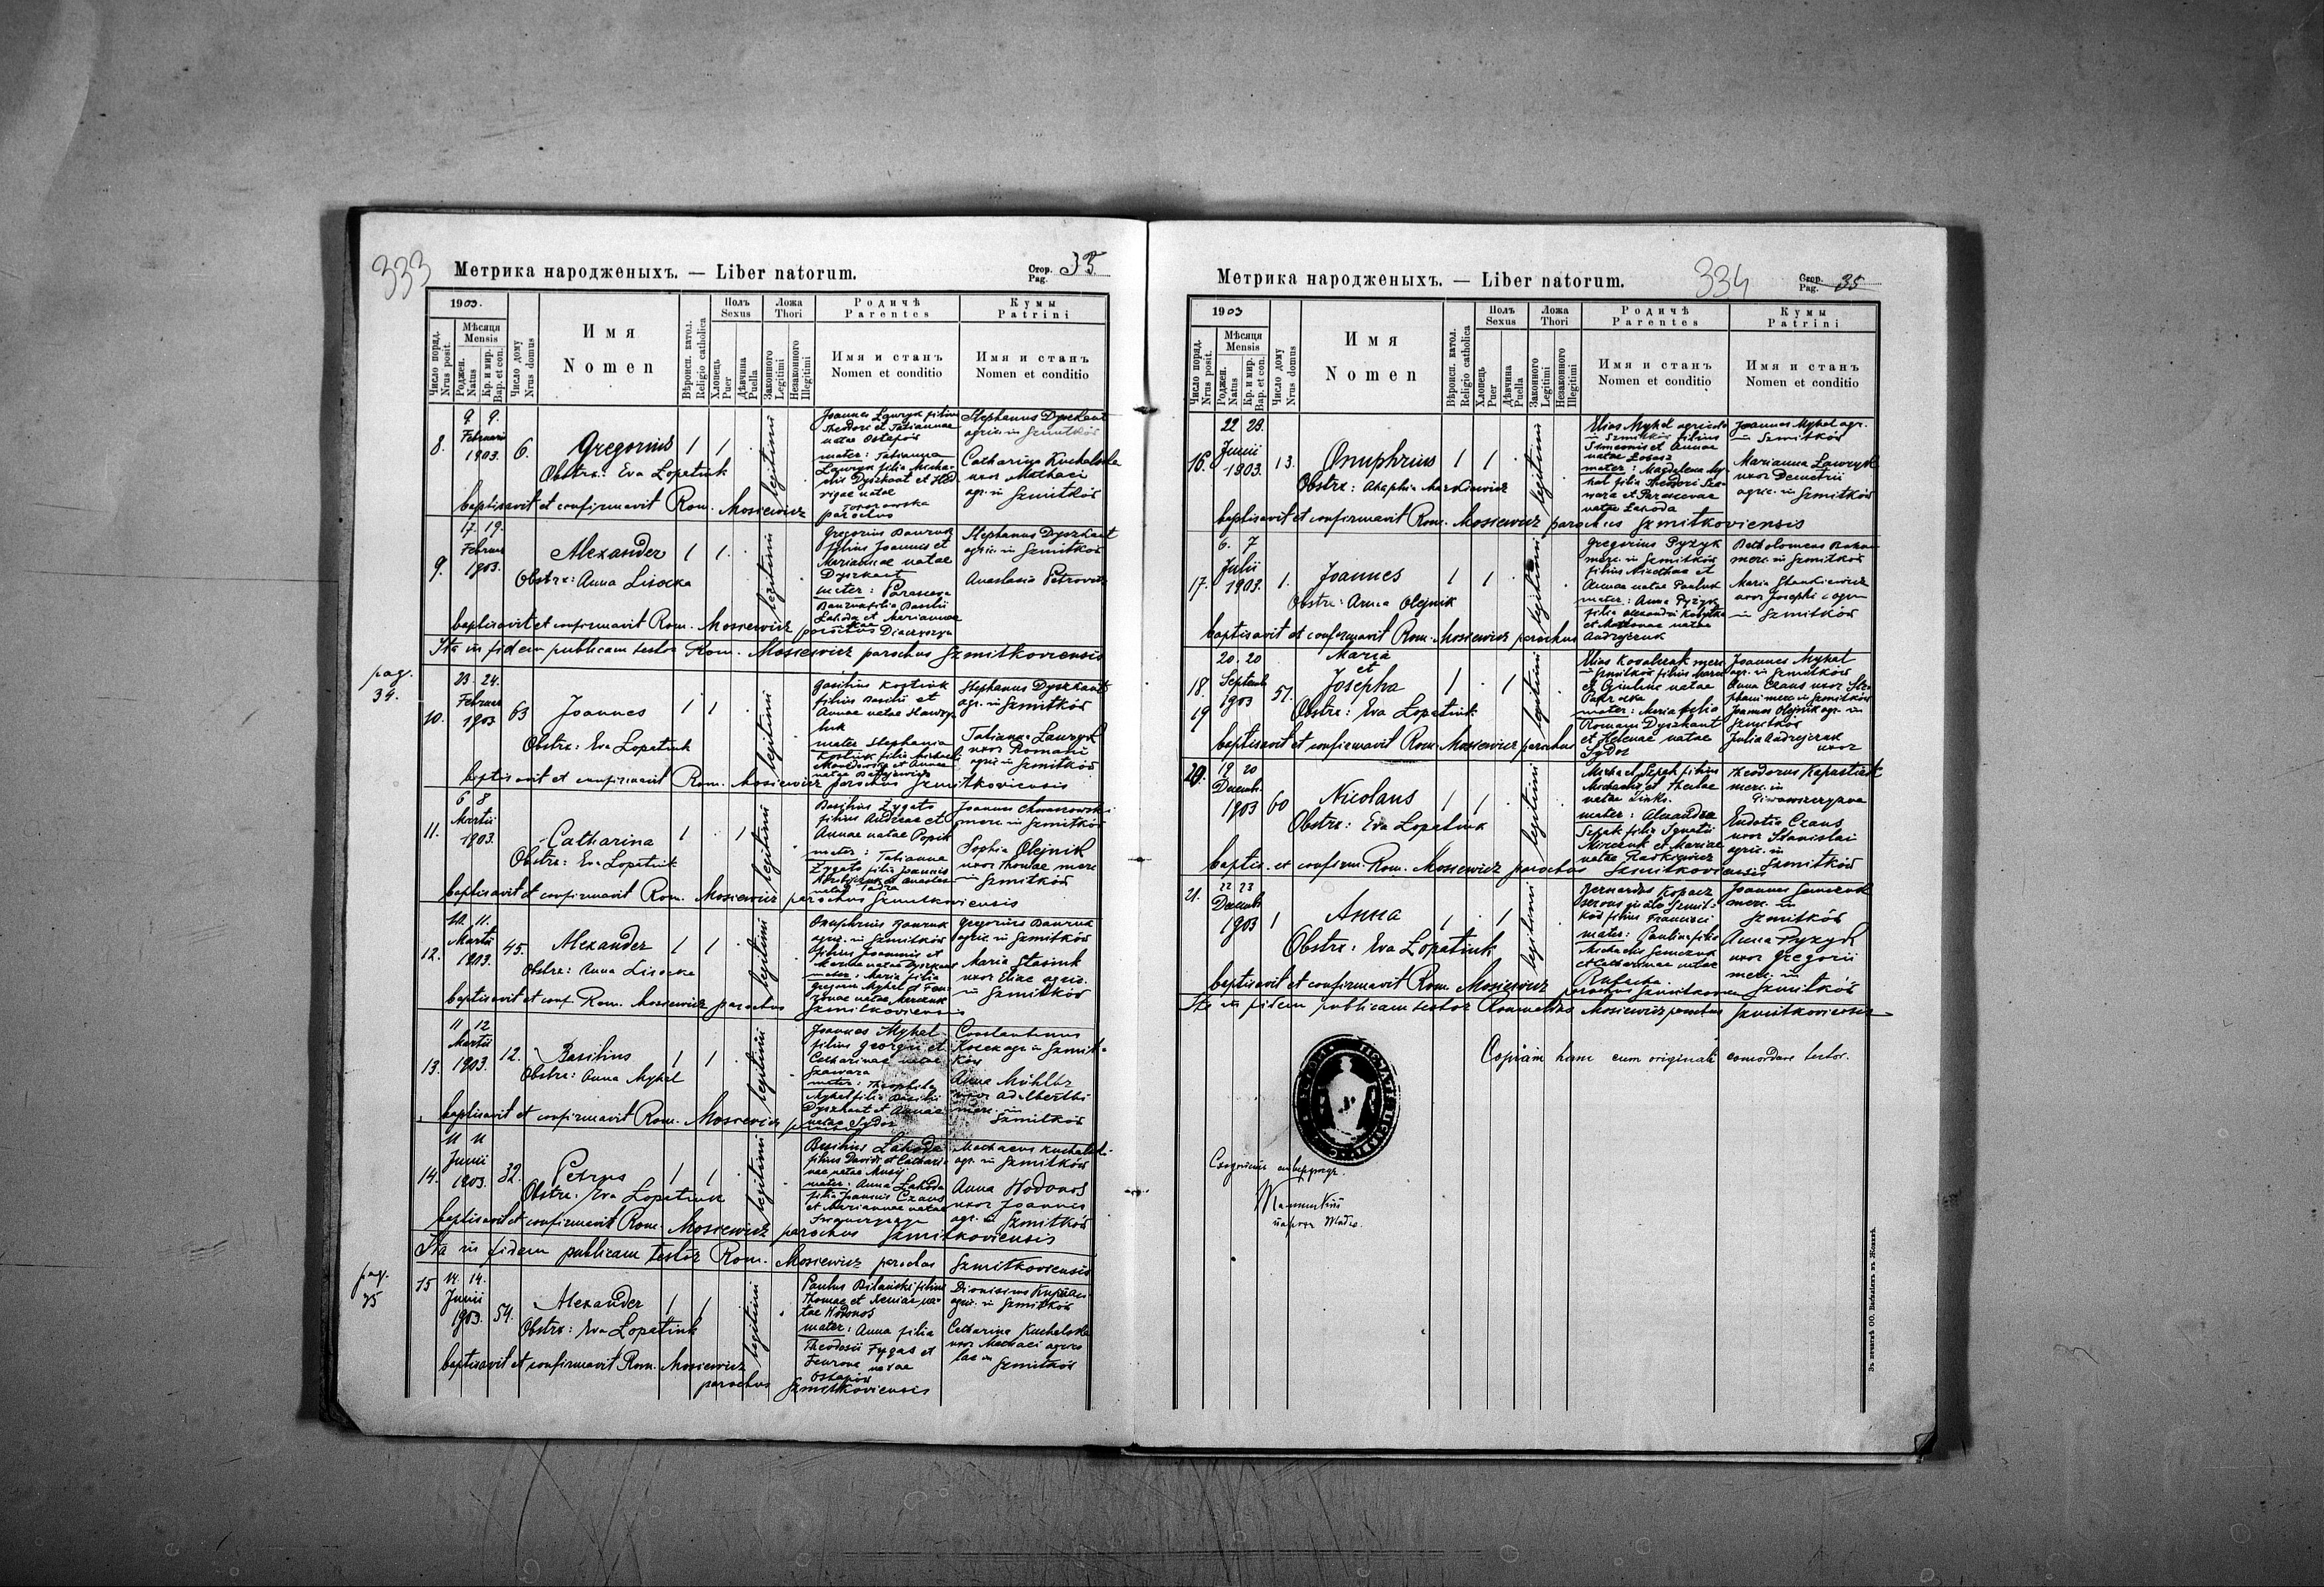 333
Метрика народженыхъ. — Liber natorum.
Стор. Pag. 35
1903.
Число поряд. Nrus posit.
Мѣсяця Mensis
Роджен. Natus
Кр. и мир. Bap. et con.
Число дому Nrus domus
Имя
Nomen
Вѣроисп. катол. Religio catholica
Полъ Sexus
Хлопець Puer
Дѣвчина Puella
Ложа Thori
Законного Legitimi
Незаконного Illegitimi
Родичѣ
Parentes
Имя и станъ
Nomen et conditio
Кумы
Patrini
Имя и станъ
Nomen et conditio
8. 9. 9. Februarii 1903. 6. Gregorius 1 1 legitimi
Obstrx: Eva Lopatiuk
Joannes Ławryk filius
Theodori et Tatiannae
natae Ostapów
mater: Tatianna
Ławryk filia Michae-
lis Dyszkant et Hed-
vigae natae
Stephanus Dyszkant
agric. in Szmitków
Catharina Kuchalska
uxor Mathaei
agr. in Szmitków
baptisavit et confirmavit Rom. Mosiewicz parochus
9. 17. 19. Februar 1903. Alexander 1 1. legitimi
Obstrx: Anna Lisocka
Gregorius Bauruk
filius Joannis et
Mariannae natae
Dyszkant
mater: Parasceva
filia Basilii
Lahoda et Mariannae
natae
Stephanus Dyszkant
agric. in Szmitków
Anastasia Petrowicz
baptisavit et confirmavit Rom. Mosiewicz parochus
Ita in fidem publicam testor Rom. Mosiewicz parochus Szmitkoviensis
pag. 34.
10. 23. 24. Februar 1903 63 Joannes 1 1 legitimi
Obstrx: Eva Lopatiuk
Basilius Kostiuk
filius Basilii et
Annae natae Hawry-
luk
mater Stephania
Kostiuk filia Michaeli
et Annae
natae
Stephanus Dyszkant
agr. in Szmitków
Tatianna Ławryk
uxor Romani
agric. in Szmitków
baptisavit et confirmavit Rom. Mosiewicz parochus Szmitkoviensis
11. 6 8 Martii 1903. Catharina 1 1 legitimi
Obstrx: Eva Lopatiuk
Basilius Zygato
filius Andreae et
Annae natae Popik
mater: Tatianna
Zygato filia Joannis
natae
Joannes
merc. in Szmitków
Sophia Olejnik
uxor Thomae merc
in Szmitków
baptisavit et confirmavit Rom. Mosiewicz parochus Szmitkoviensis
12. 10. 11. Martii 1903. 45. Alexander 1 1 legitimi
Obstrx: Anna Lisocka
Onuphrius Bauruk
agric. in Szmitków
filius Joannis et
Mariae natae Dyszkant
mater: Maria filia
Gregorii Myhal et
natae
Gregorius Bauruk
agric. in Szmitków
Maria Stasiuk
uxor Eliae agric.
in Szmitków
baptisavit et conf. Rom. Mosiewicz parochus Szmitkoviensis
13. 11 12 Martii 1903. 12. Basilius 1 1 legitimi
Obstrx: Anna Myhal
Joannes Myhal
filius Georgii et
Catharinae natae
Szawara
mater: Theophila
Myhal filia Basilii
Dyszkant et Annae
natae Sydor
Constantinus
Kosek agr in Szmit-
ków
Anna Mühlbr
uxor Adalberthi
merc. in
Szmitków
baptisavit et confirmavit Rom. Mosiewicz
14. 11 11 Junii 1903. 32. Petrus 1 1 legitimi
Obstrx: Eva Lopatiuk
Basilius Lahoda
filius Davidi et Cathari-
nae natae Musij
mater: Anna Lahoda
filia Joannis Czaus
et Mariannae natae
Mathaeus Kuchalski
agr. in Szmitków
Anna Hodonos
uxor Joannis
agr. in Szmitków
baptisavit et confirmavit Rom. Mosiewicz parochus Szmitkoviensis
Ita in fidem publicam testor Rom. Mosiewicz parochus Szmitkoviensis
pag. 35
15 14. 14. Junii 1903. 54. Alexander 1 1 legitimi
Obstrx: Eva Lopatiuk
Paulus Bilański filius
Thomae et Xeniae na-
tae Hodonos
mater: Anna filia
Theodosii Fygas et
natae
Ostapów
Dionisius
agric. in Szmitków
Catharina Kuchalska
uxor Mathaei agrico
lae in
Szmitków
baptisavit et confirmavit Rom. Mosiewicz
parochus Szmitkoviensis
Метрика народженыхъ. — Liber natorum.
334
Стор. Pag. 35
1903
Число поряд. Nrus posit.
Мѣсяця Mensis
Роджен. Natus
Кр. и мир. Bap. et con.
Число дому Nrus domus
Имя
Nomen
Вѣроисп. катол. Religio catholica
Полъ Sexus
Хлопець Puer
Дѣвчина Puella
Ложа Thori
Законного Legitimi
Незаконного Illegitimi
Родичѣ
Parentes
Имя и станъ
Nomen et conditio
Кумы
Patrini
Имя и станъ
Nomen et conditio
16. 22 28. Junii 1903. 13. Onuphrius 1 1 legitimi
Obstrx: Ahaphia
Elias Myhal agricola
in Szmitków filius
Simeonis et Annae
natae
mater: Magdalena My-
hal filia Theodori Sza-
wara et Parascevae
natae Lahoda
Joannes Myhal agr.
in Szmitków
Marianna Ławryk
uxor Demetrii
agric. in Szmitków
baptisavit et confirmavit Rom. Mosiewicz parochus Szmitkoviensis
17. 6. 7 Julii 1903. 1. Joannes 1 1 legitimi
Obstrx: Anna Olejnik
Gregorius Pyzyk
merc. in Szmitków
filius Nicolae et
Annae natae Pauluk
mater: Anna Pyzyk
filia Alexandri
et natae
Andrejczuk
Bartholomeus
merc. in Szmitków
Maria Stankiewicz
uxor Josephi
in Szmitków
baptisavit et confirmavit Rom. Mosiewicz parochus
18. 19 20. 20 Septemb 1903 57. Maria
et
Josepha 1 1 legitimi
Obstrx: Eva Lopatiuk
Elias Kovalczuk merc
in Szmitków filius
et natae
mater: Maria filia
Romani Dyszkant
et Helenae natae
Sydor
Joannes Myhal
agr. in Szmitków
Anna Czaus uxor Ste-
phani merc in Szmitków
Joannes Olejnik agr. in
Szmitków
Julia Andrejczuk
uxor
baptisavit et confirmavit Rom. Mosiewicz parochus
20. 19 20 Decemb. 1903 60 Nicolaus 1 1 legitimi
Obstrx: Eva Lopatiuk
Michael Sepak filius
Michaelis et Theclae
natae Zinko.
mater: Alexandra
Sepak filia Ignatii
et Mariae
natae
Theodorus Kapustiak
merc. in
Eudotia Czaus
uxor Stanislai
agric. in
Szmitków
baptis. et confirm. Rom. Mosiewicz parochus Szmitkoviensis
21. 22 23 Decemb 1903 1 Anna 1 1 legitimi
Obstrx: Eva Lopatiuk
Bernardus Kopacz
Szmit-
ków filius Francisci
mater: Paulina filia
Michaelis Semczuk
et Catharinae natae
Joannes Semczuk
merc. in
Szmitków
Anna Pyzyk
uxor Gregorii
merc. in
Szmitków
baptisavit et confirmavit Rom. Mosiewicz parochus Szmitkoviensis
Ita in fidem publicam testor Romualdus Mosiewicz parochus Szmitkoviensis
Copiam hanc cum originali concordare testor.
Зъ печатнѣ ОО. Василіянъ въ Жовквѣ.